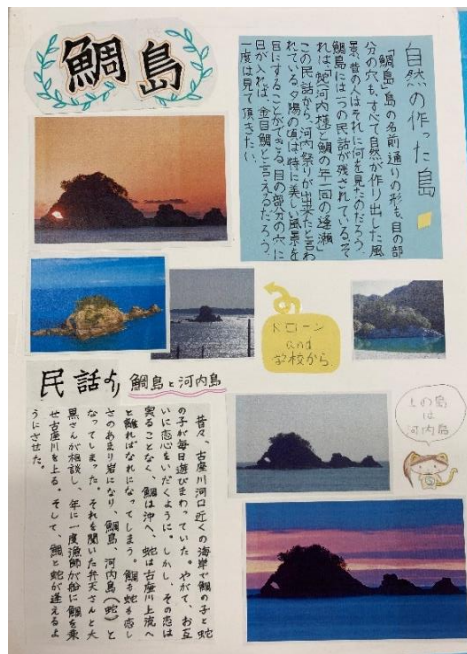 鯛島
自然の作った島
「鯛島」島の名前通りの形も、目の部
分の穴も、すべて自然が作り出した風
景。昔の人はそれに何を見たのだろう。
鯛島には一つの民話が残されている。そ
れは、蛇(河内様)と鯛の年一回の逢瀬
この民話から、河内祭りが出来たと言わ
れている。夕陽の頃は特に美しい風景を
目にすることができる。目の部分の穴に
日が入れば、金目鯛と言えるだろう。
一度は見て頂きたい。
ドローン
and
学校から
民話より 鯛島と河内島
昔々、古座川河口近くの海岸で鯛の子と蛇
の子が毎日遊びまわっていた。やがて、お互
いに恋心をいだくように。しかし、その恋は
実ることなく、鯛は沖へ、蛇は古座川上流へ
と離ればなれになってしまう。鯛も蛇も恋し
さのあまり岩になり、鯛島、河内島(蛇)と
なってしまった。それを聞いた弁天さんと大
黒さんが相談し、年に一度漁師が船に鯛を乗
せ古座川を上る。そして、鯛と蛇が逢えるよ
うにさせた。
上の島
は
河内島